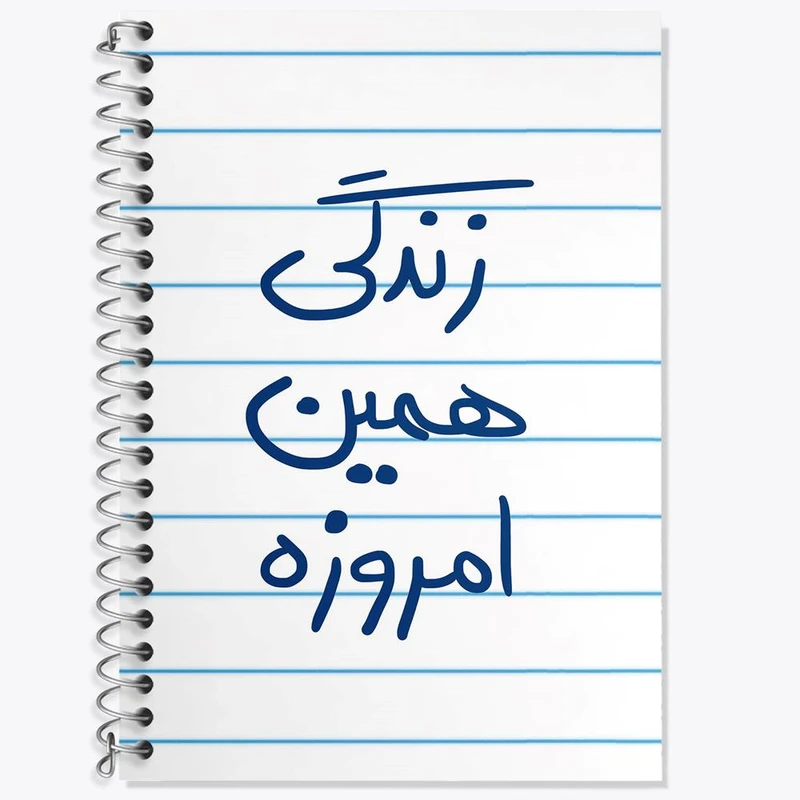 زندگی
همین
امروزه